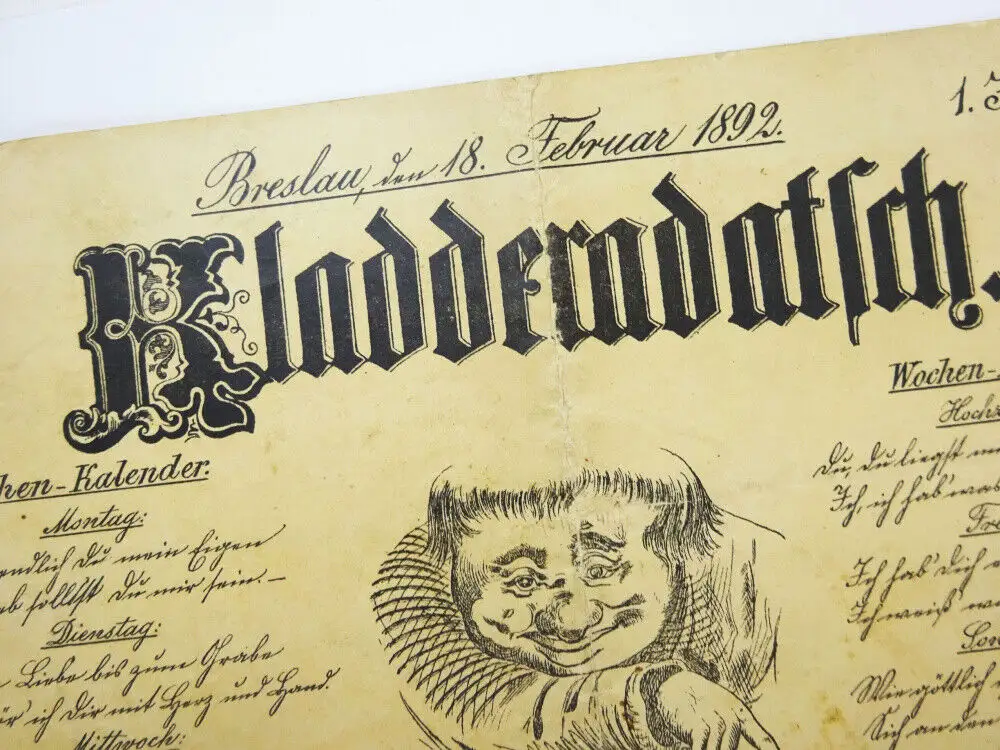 Breslau, den 18. Februar 1892.
1.
Kladderadatsch.
hen-Kalender.
Montag:
endlich Du mein Eigen
ab sollst Du mir sein. —
Dienstag:
Liebe bis zum Grabe
ür ich Dir mit Herz und Hand.
Mittwoch:
Wochen-
Hochz
Du, Du liegst m
Ich, ich hab' was
Fre
Ich hab' Dich
Ich weiß
Son
Wie göttlich
Sich an den